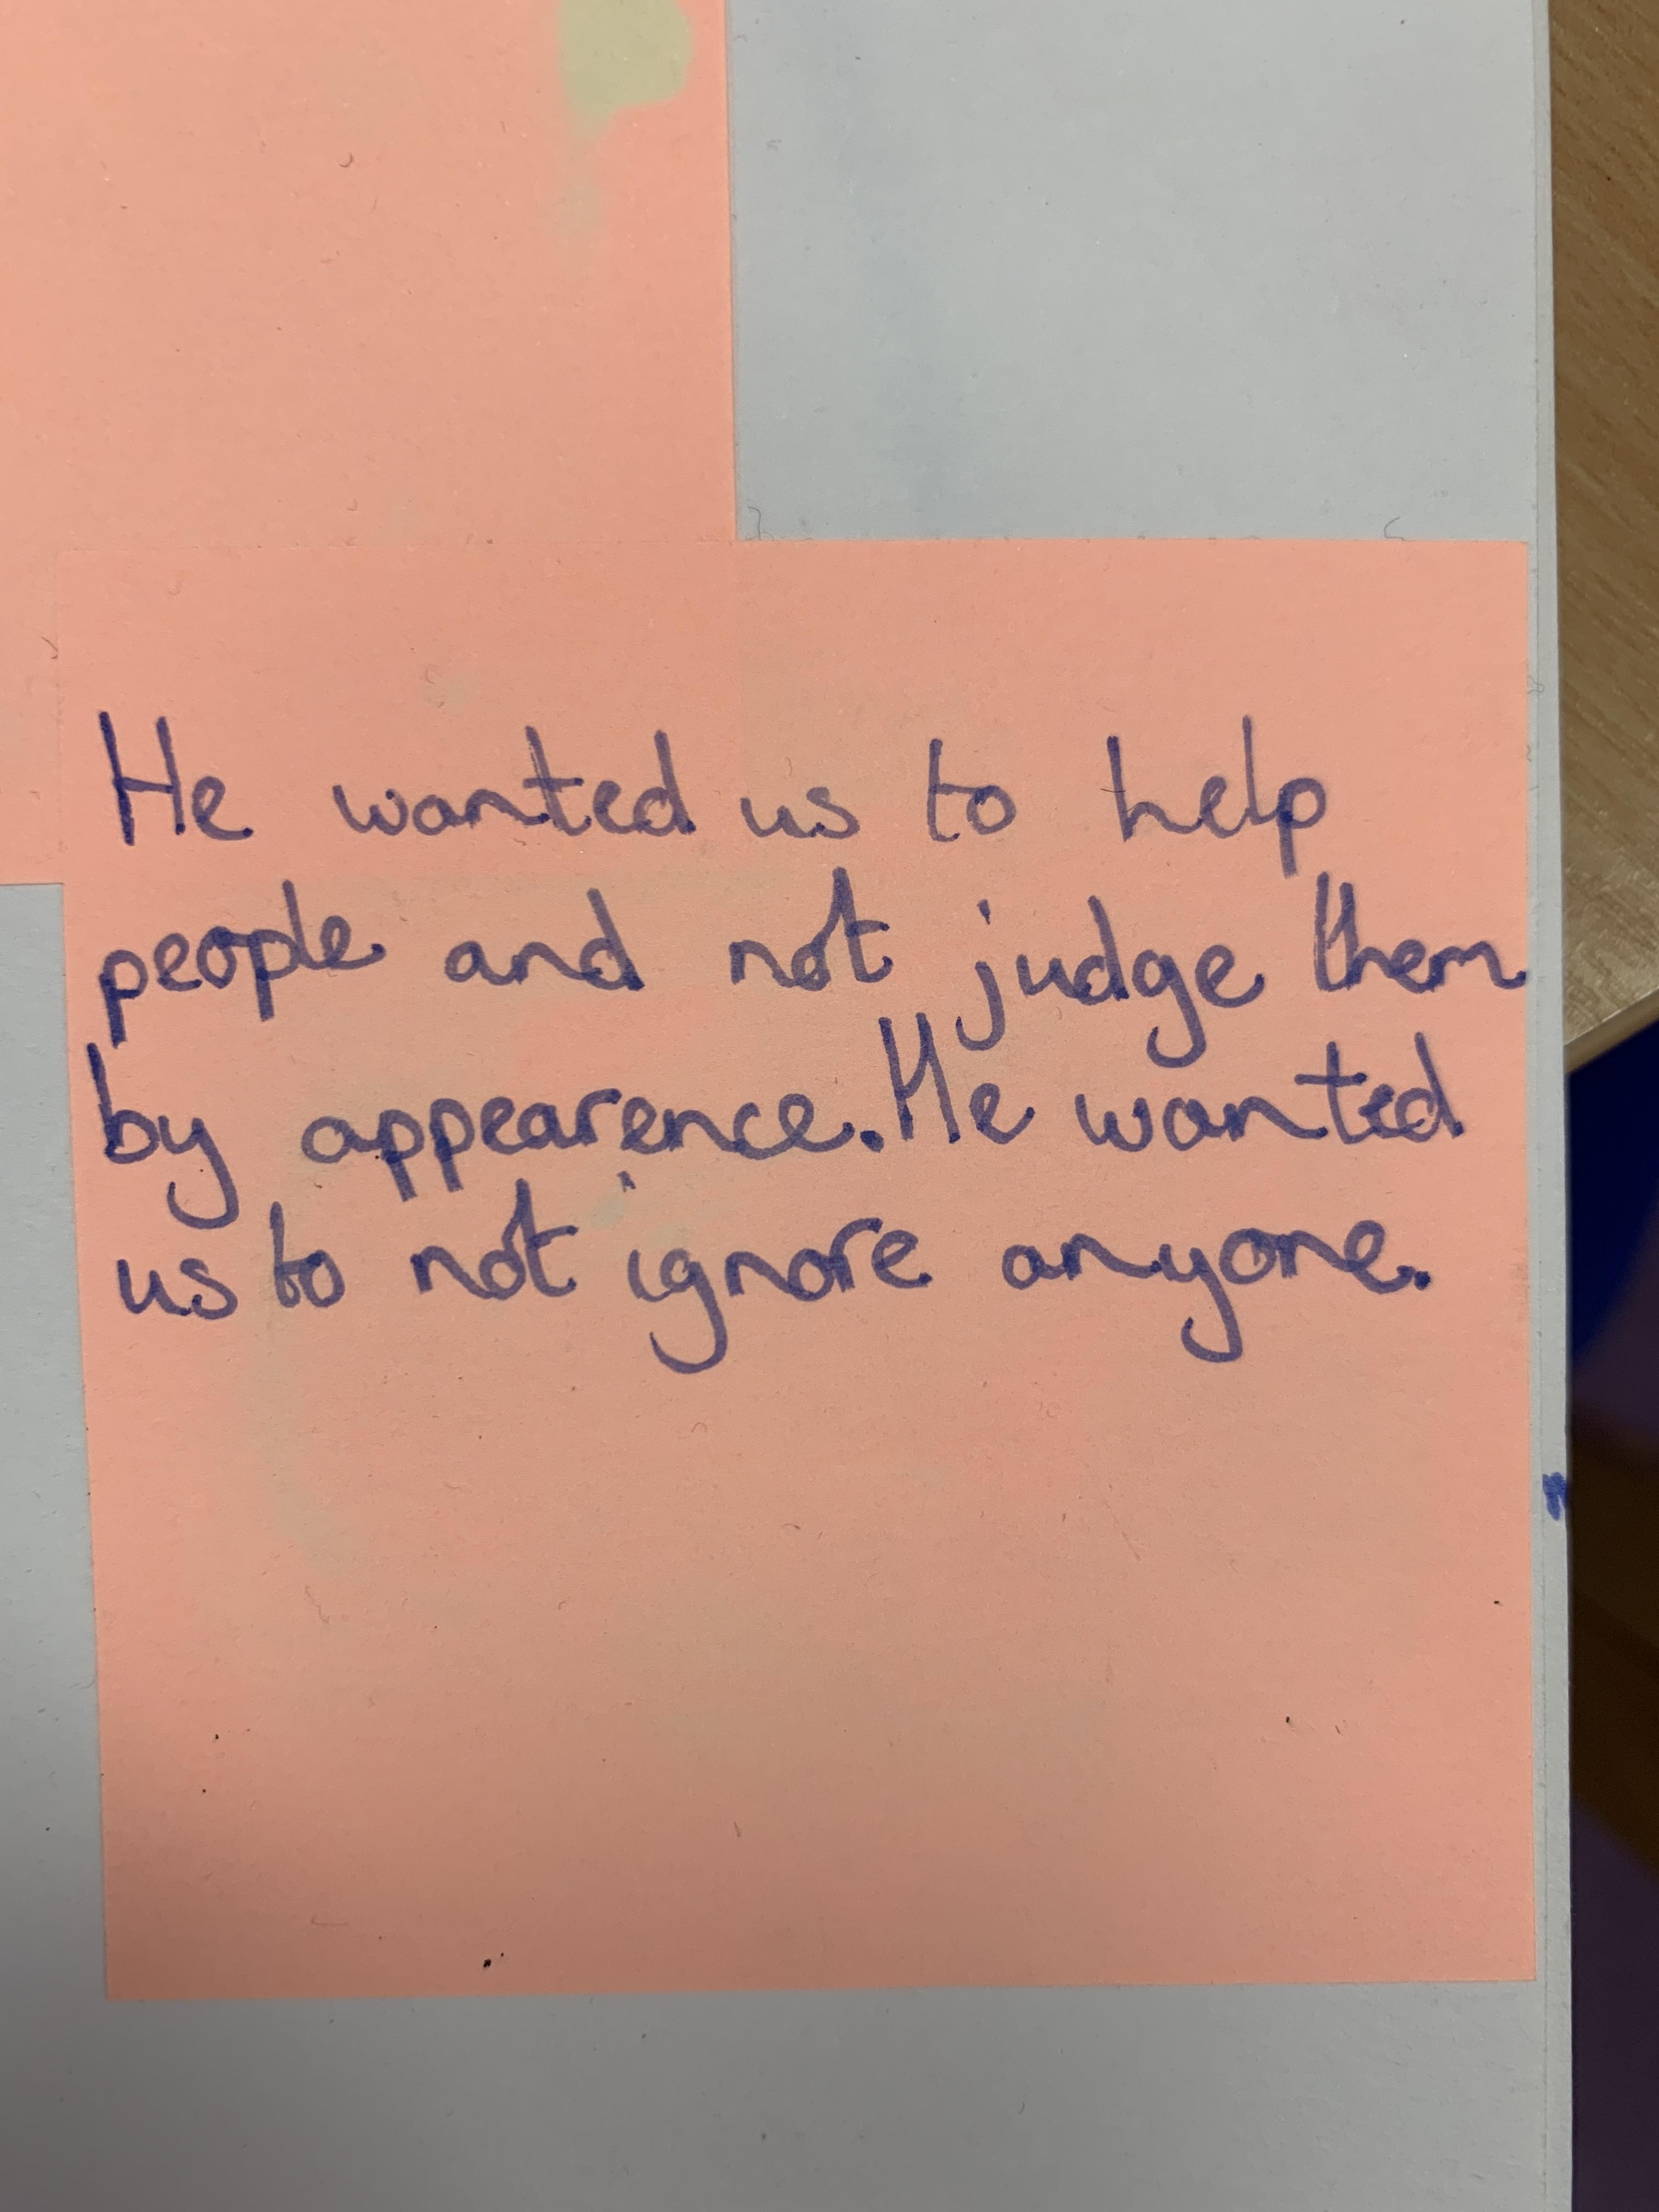 He wanted us to help
people and not judge them
by appearence. He wanted
us to not ignore anyone.